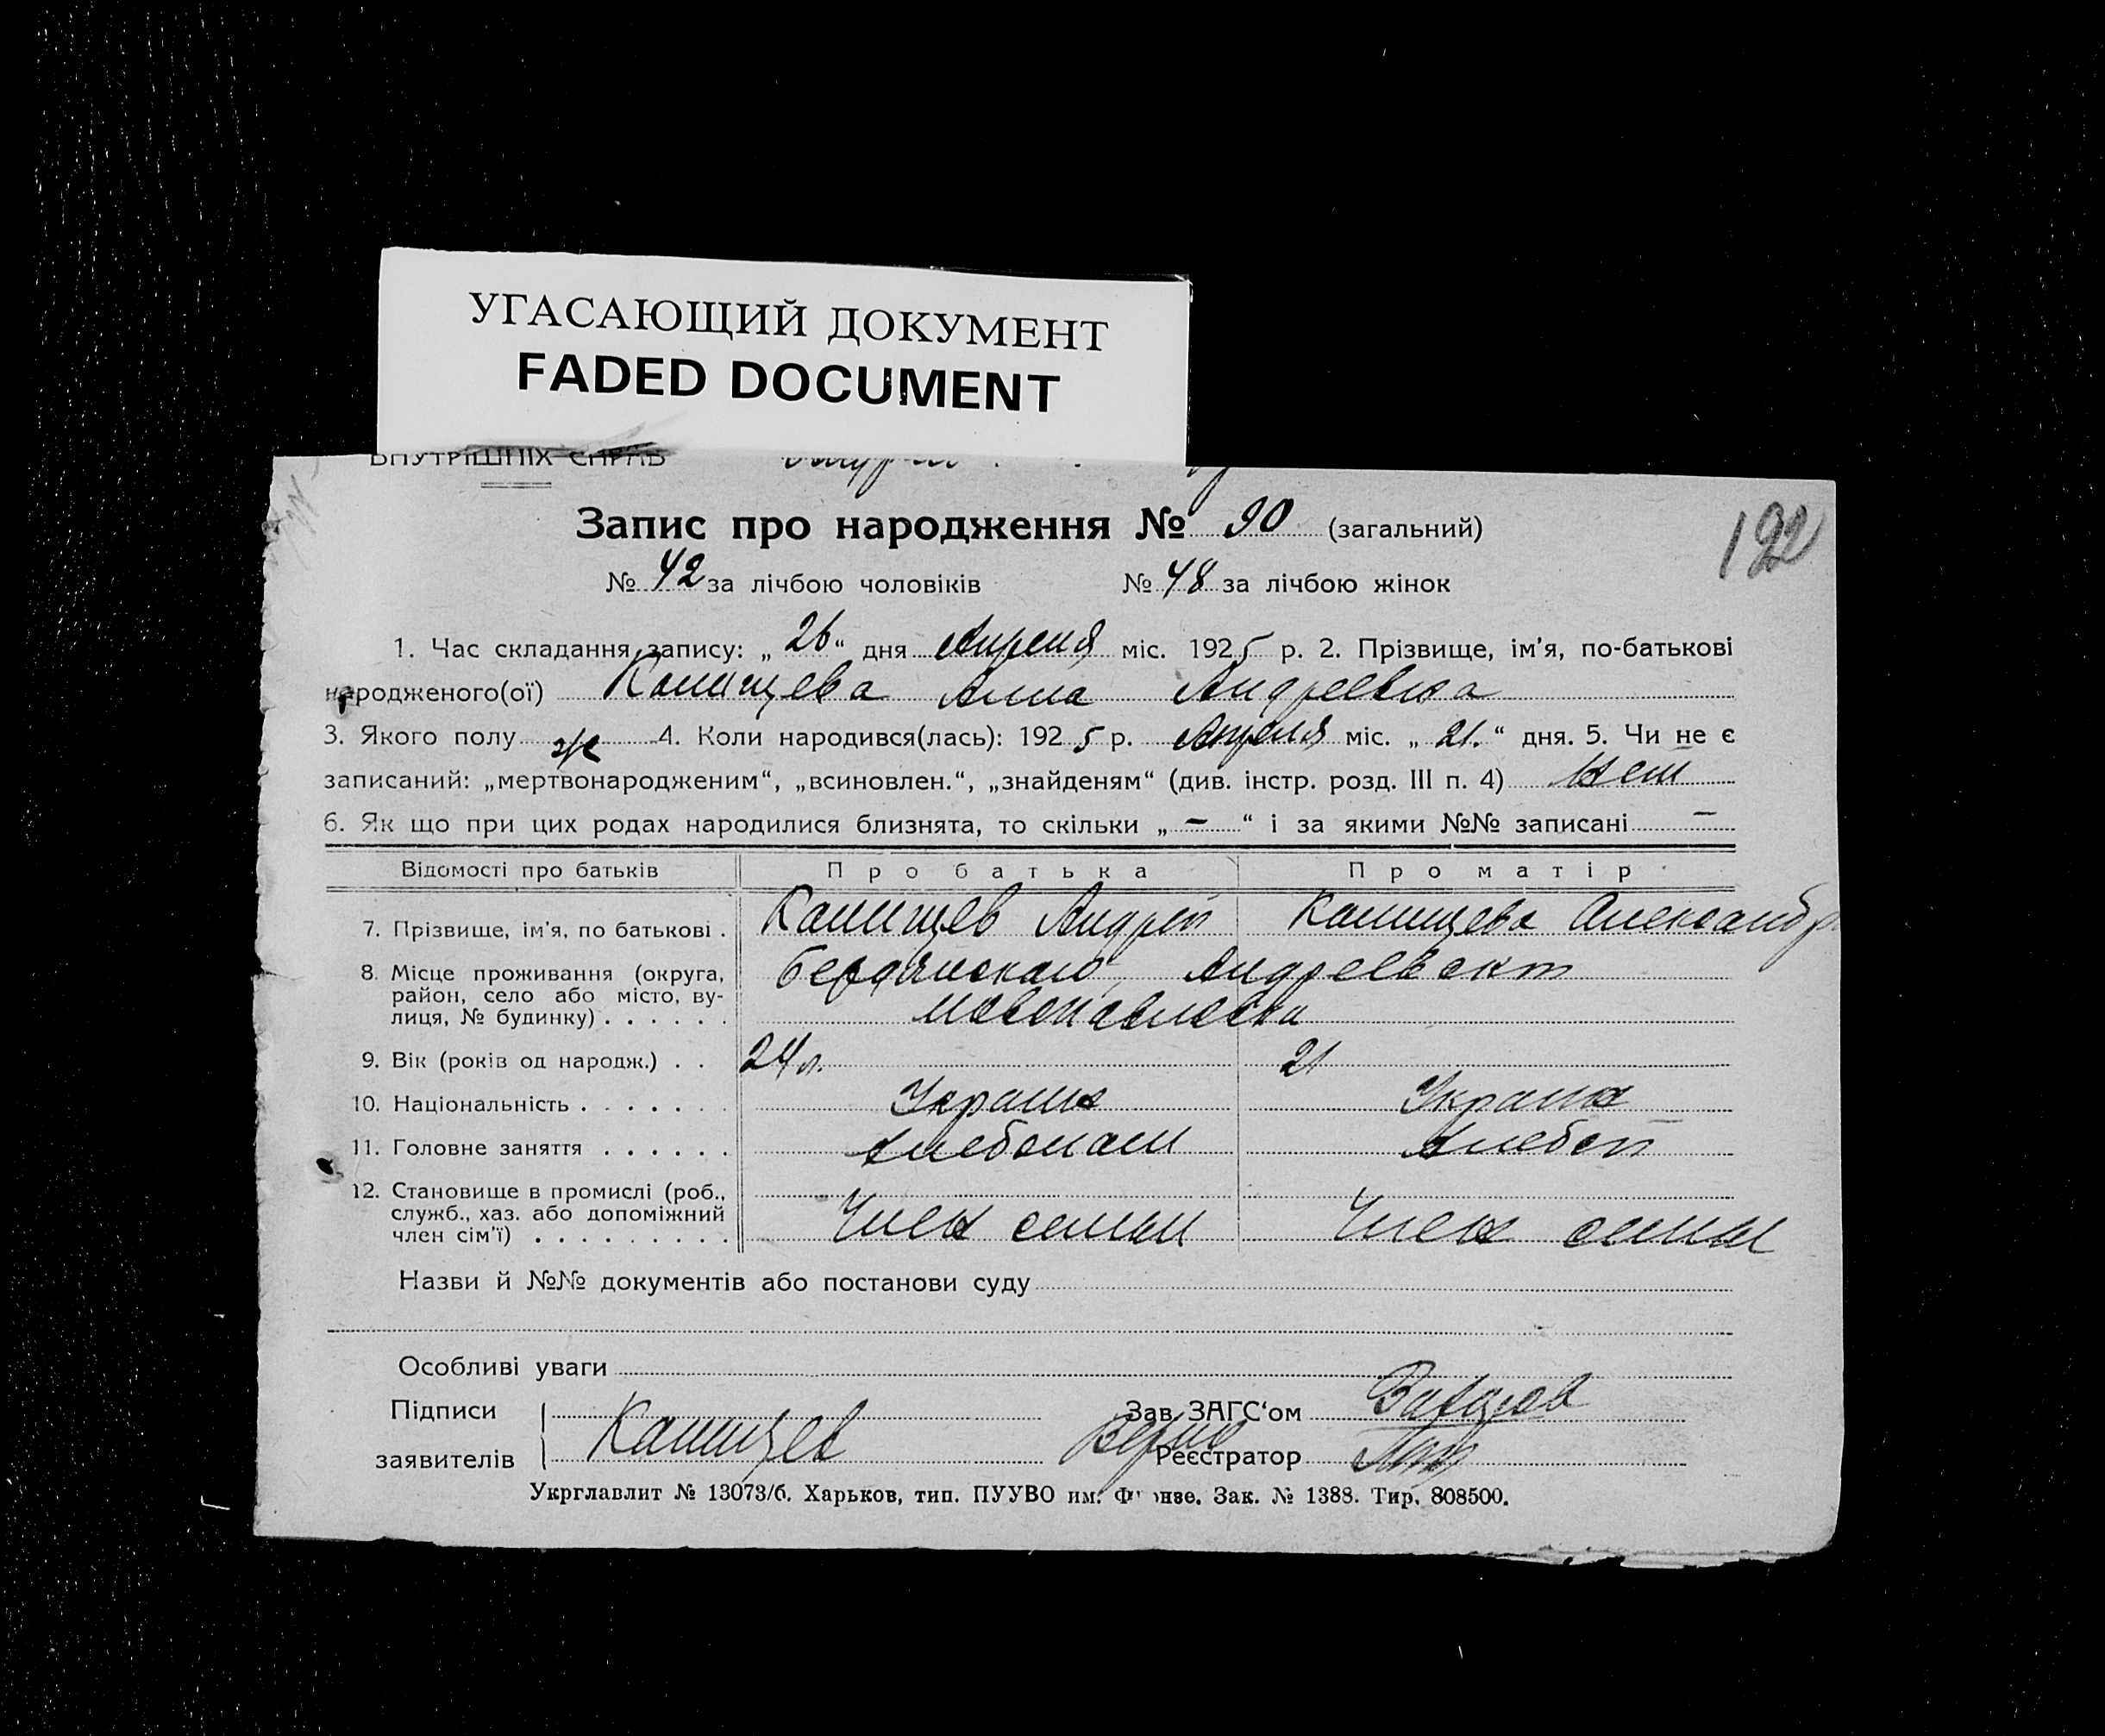 УГАСАЮЩИЙ ДОКУМЕНТ
FADED DOCUMENT
ВНУТРІШНІХ СПРАВ
Запис про народження № 90 (загальний)
192
№ 42 за лічбою чоловіків № 48 за лічбою жінок
1. Час складання запису: „ 26 “ дня Апреля міс. 1925 р. 2. Прізвище, ім'я, по-батькові
народженого(ої) Анна Андреевна
3. Якого полу ж 4. Коли народився(лась): 1925 р. Апреля міс. „ 21. “ дня. 5. Чи не є
записаний: „мертвонародженим“, „всиновлен.“, „знайденям“ (див. інстр. розд. III п. 4) Нет
6. Як що при цих родах народилися близнята, то скільки „ – “ і за якими №№ записані –
Відомості про батьків Про батька Про матір
7. Прізвище, ім'я, по батькові . Андрей Александр
8. Місце проживання (округа, район, село або місто, вулиця, № будинку) . . . . . . Бердянского, Андреевск
Новопавловка
9. Вік (років од народж.) . . 24 л. 21
10. Національність . . . . . . . Украин Украин
11. Головне заняття . . . . . . Хлебопаш Хлебоп
12. Становище в промислі (роб.,
служб., хаз. або допоміжний
член сім'ї) . . . . . . . . . Член семьи Член семьи
Назви й №№ документів або постанови суду
Особливі уваги
Підписи Зав. ЗАГС‘ом
заявителів Верно Реєстратор
Укрглавлит № 13073/б. Харьков, тип. ПУУВО им. Фрунзе. Зак. № 1388. Тир. 808500.